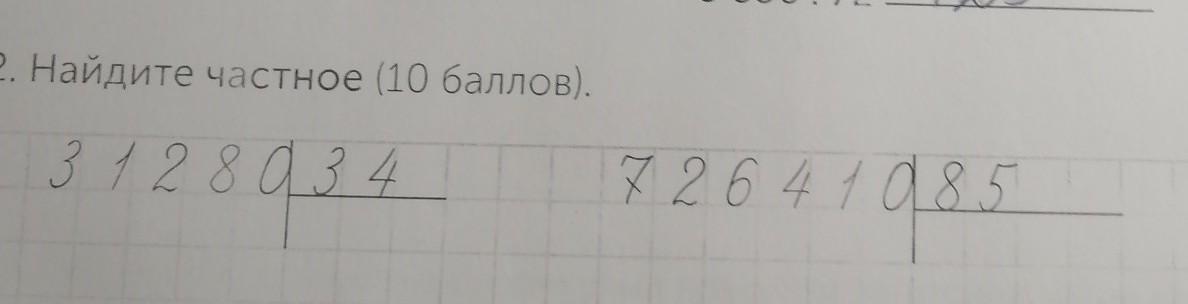 2. Найдите частное (10 баллов).
31280 34 726410 85